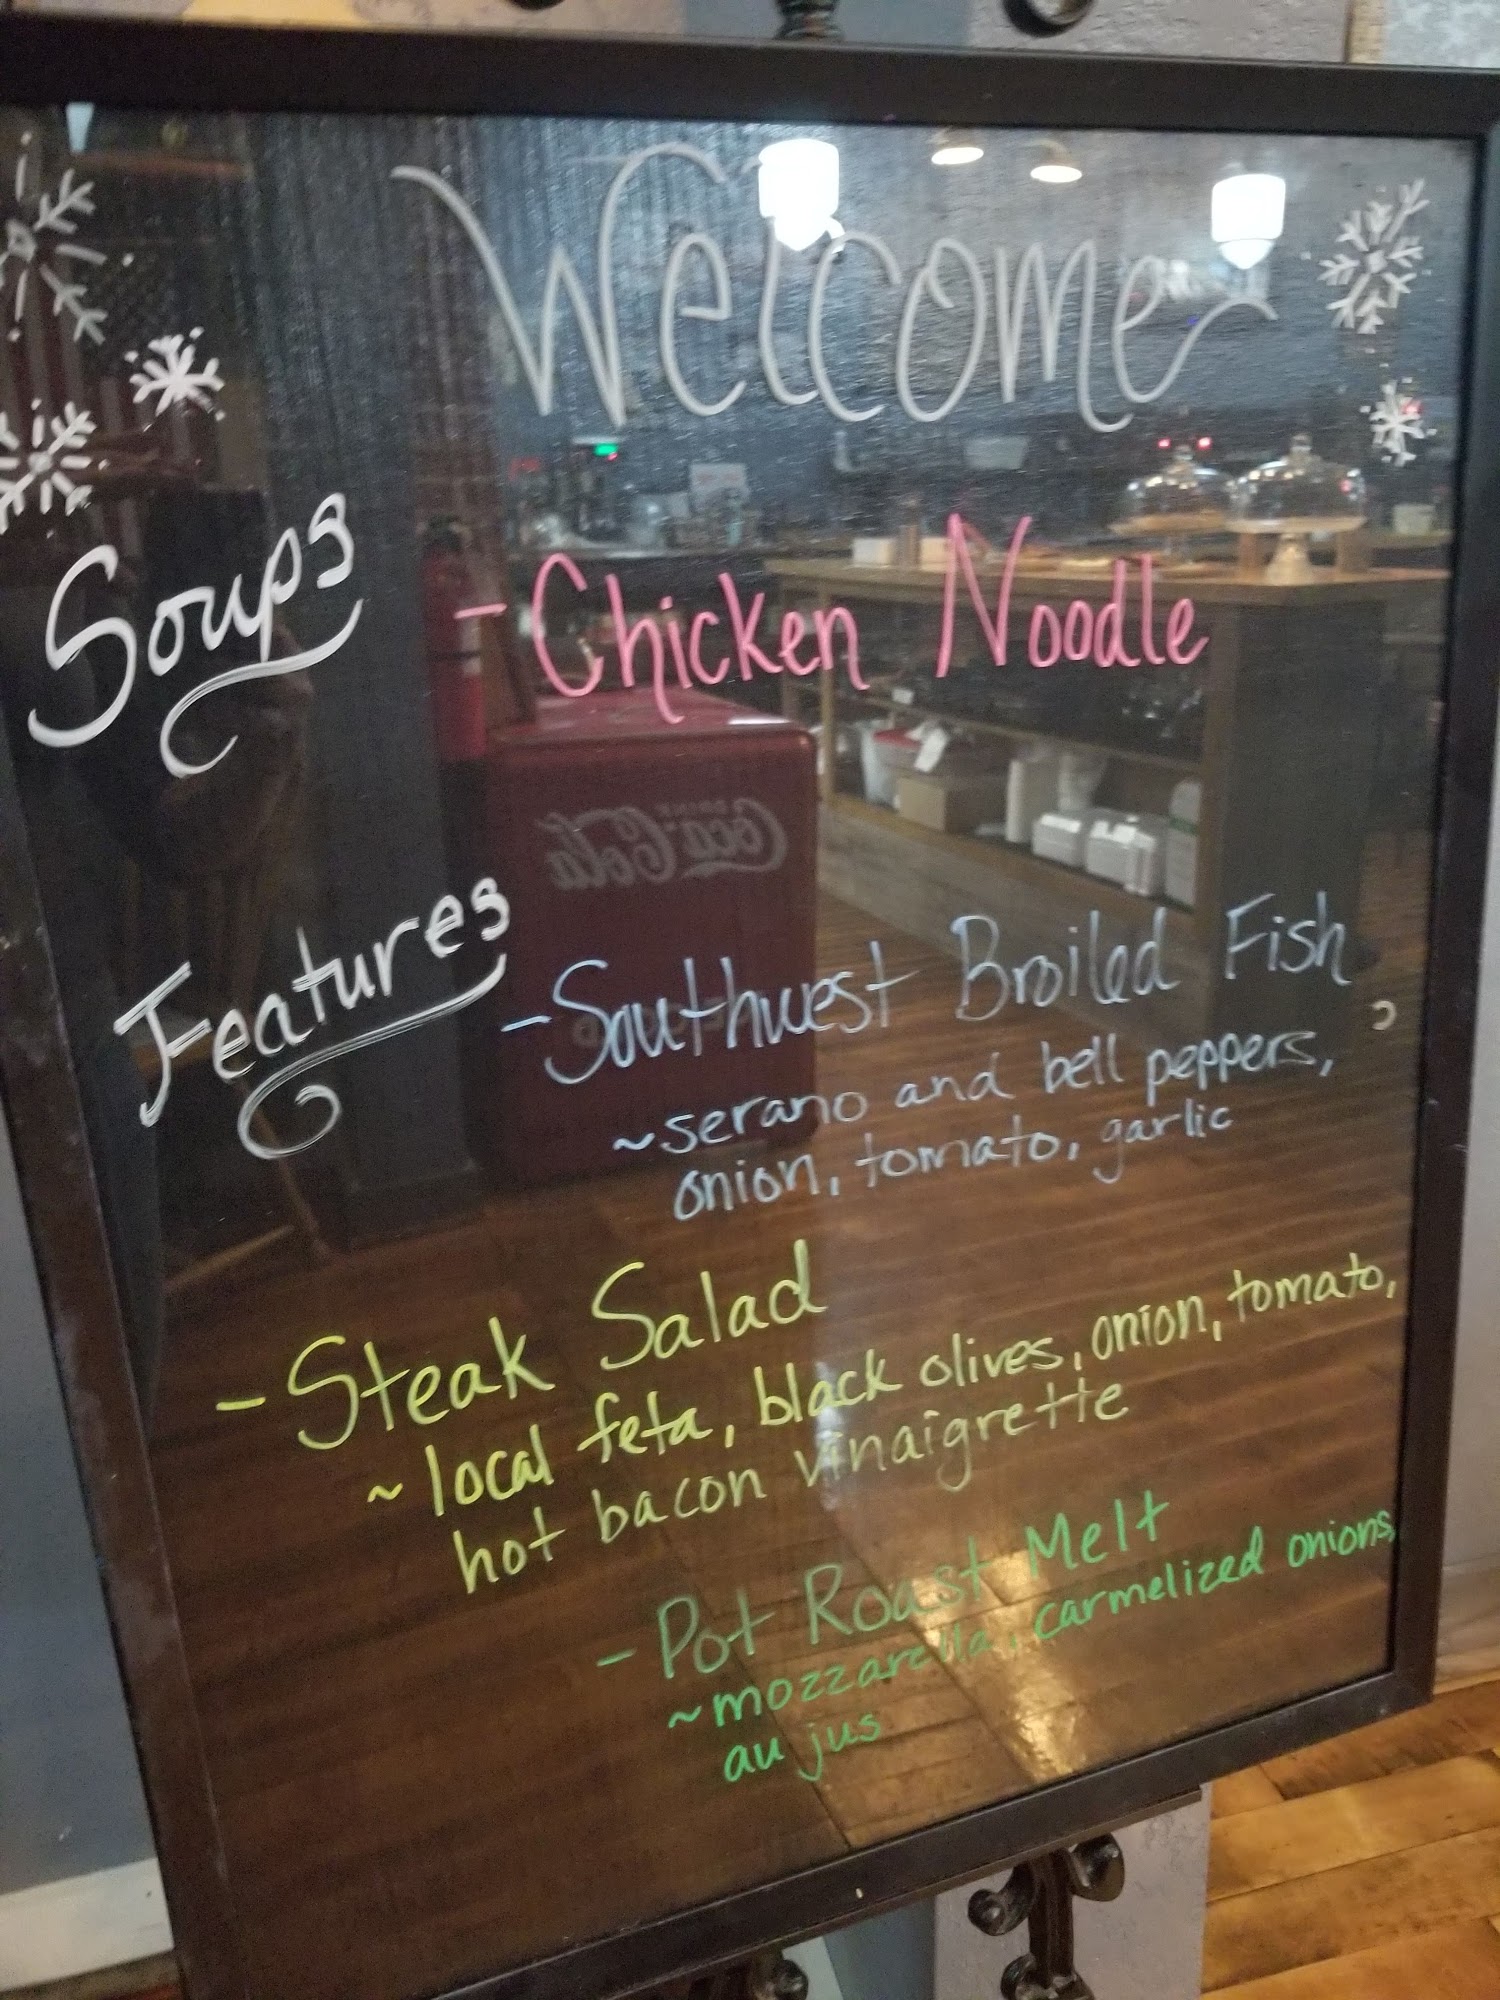 Welcome
Soups
- Chicken Noodle
DRINK
Coca-Cola
Features
- Southwest Broiled Fish
~ serano and bell peppers,
onion, tomato, garlic
- Steak Salad
~ local feta, black olives, onion, tomato,
hot bacon vinaigrette
- Pot Roast Melt
~ mozzarella, carmelized onions,
au jus